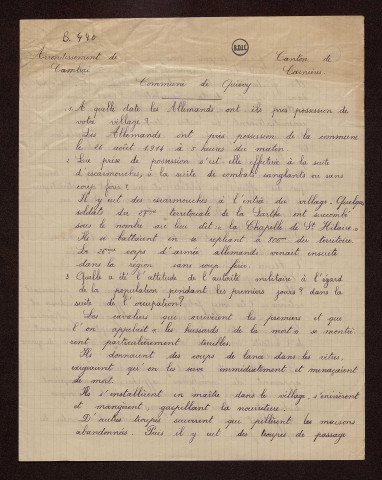 B. 440
B.D.I.C
Arrondissement de
Cambrai
Canton de
Carnières
Commune de Quiévy
1. A quelle date les Allemands ont-ils pris possession de
votre village?
Les Allemands ont pris possession de la commune
le 26 août 1914 à 5 heures du matin
2. La prise de possession s'est-elle effectuée à la suite
d'escarmouches, à la suite de combats sanglants ou sans
coup férir?
Il y eut des escarmouches à l'entrée du village. Quelques
soldats du territoriale de la Sarthe ont succombé
sous le nombre au lieu dit "la Chapelle de St Hilaire"
Ils se battaient en se repliant à du territoire.
Le corps d'armée allemand, venait ensuite
dans la région sans coup férir.
3. Quelle a été l'attitude de l'autorité militaire à l'égard
de la population pendant les premiers jours? dans la
suite de l'occupation?
Les cavaliers qui arrivèrent les premiers et que
l'on appelait "les hussards de la mort" se montrè-
rent particulièrement terribles.
Ils donnaient des coups de lance dans les vitres,
exigeaient qu'on les serve immédiatement et menaçaient
de mort.
Ils s'installèrent en maître dans le village, s'enivrèrent
et mangèrent, gaspillant la nourriture.
D'autres troupes suivirent qui pillèrent les maisons
abandonnées. Puis il y eut des troupes de passage